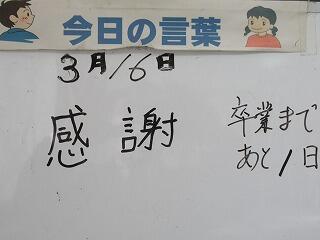 今日の言葉
3月16日
感謝
卒業まで
あと1日